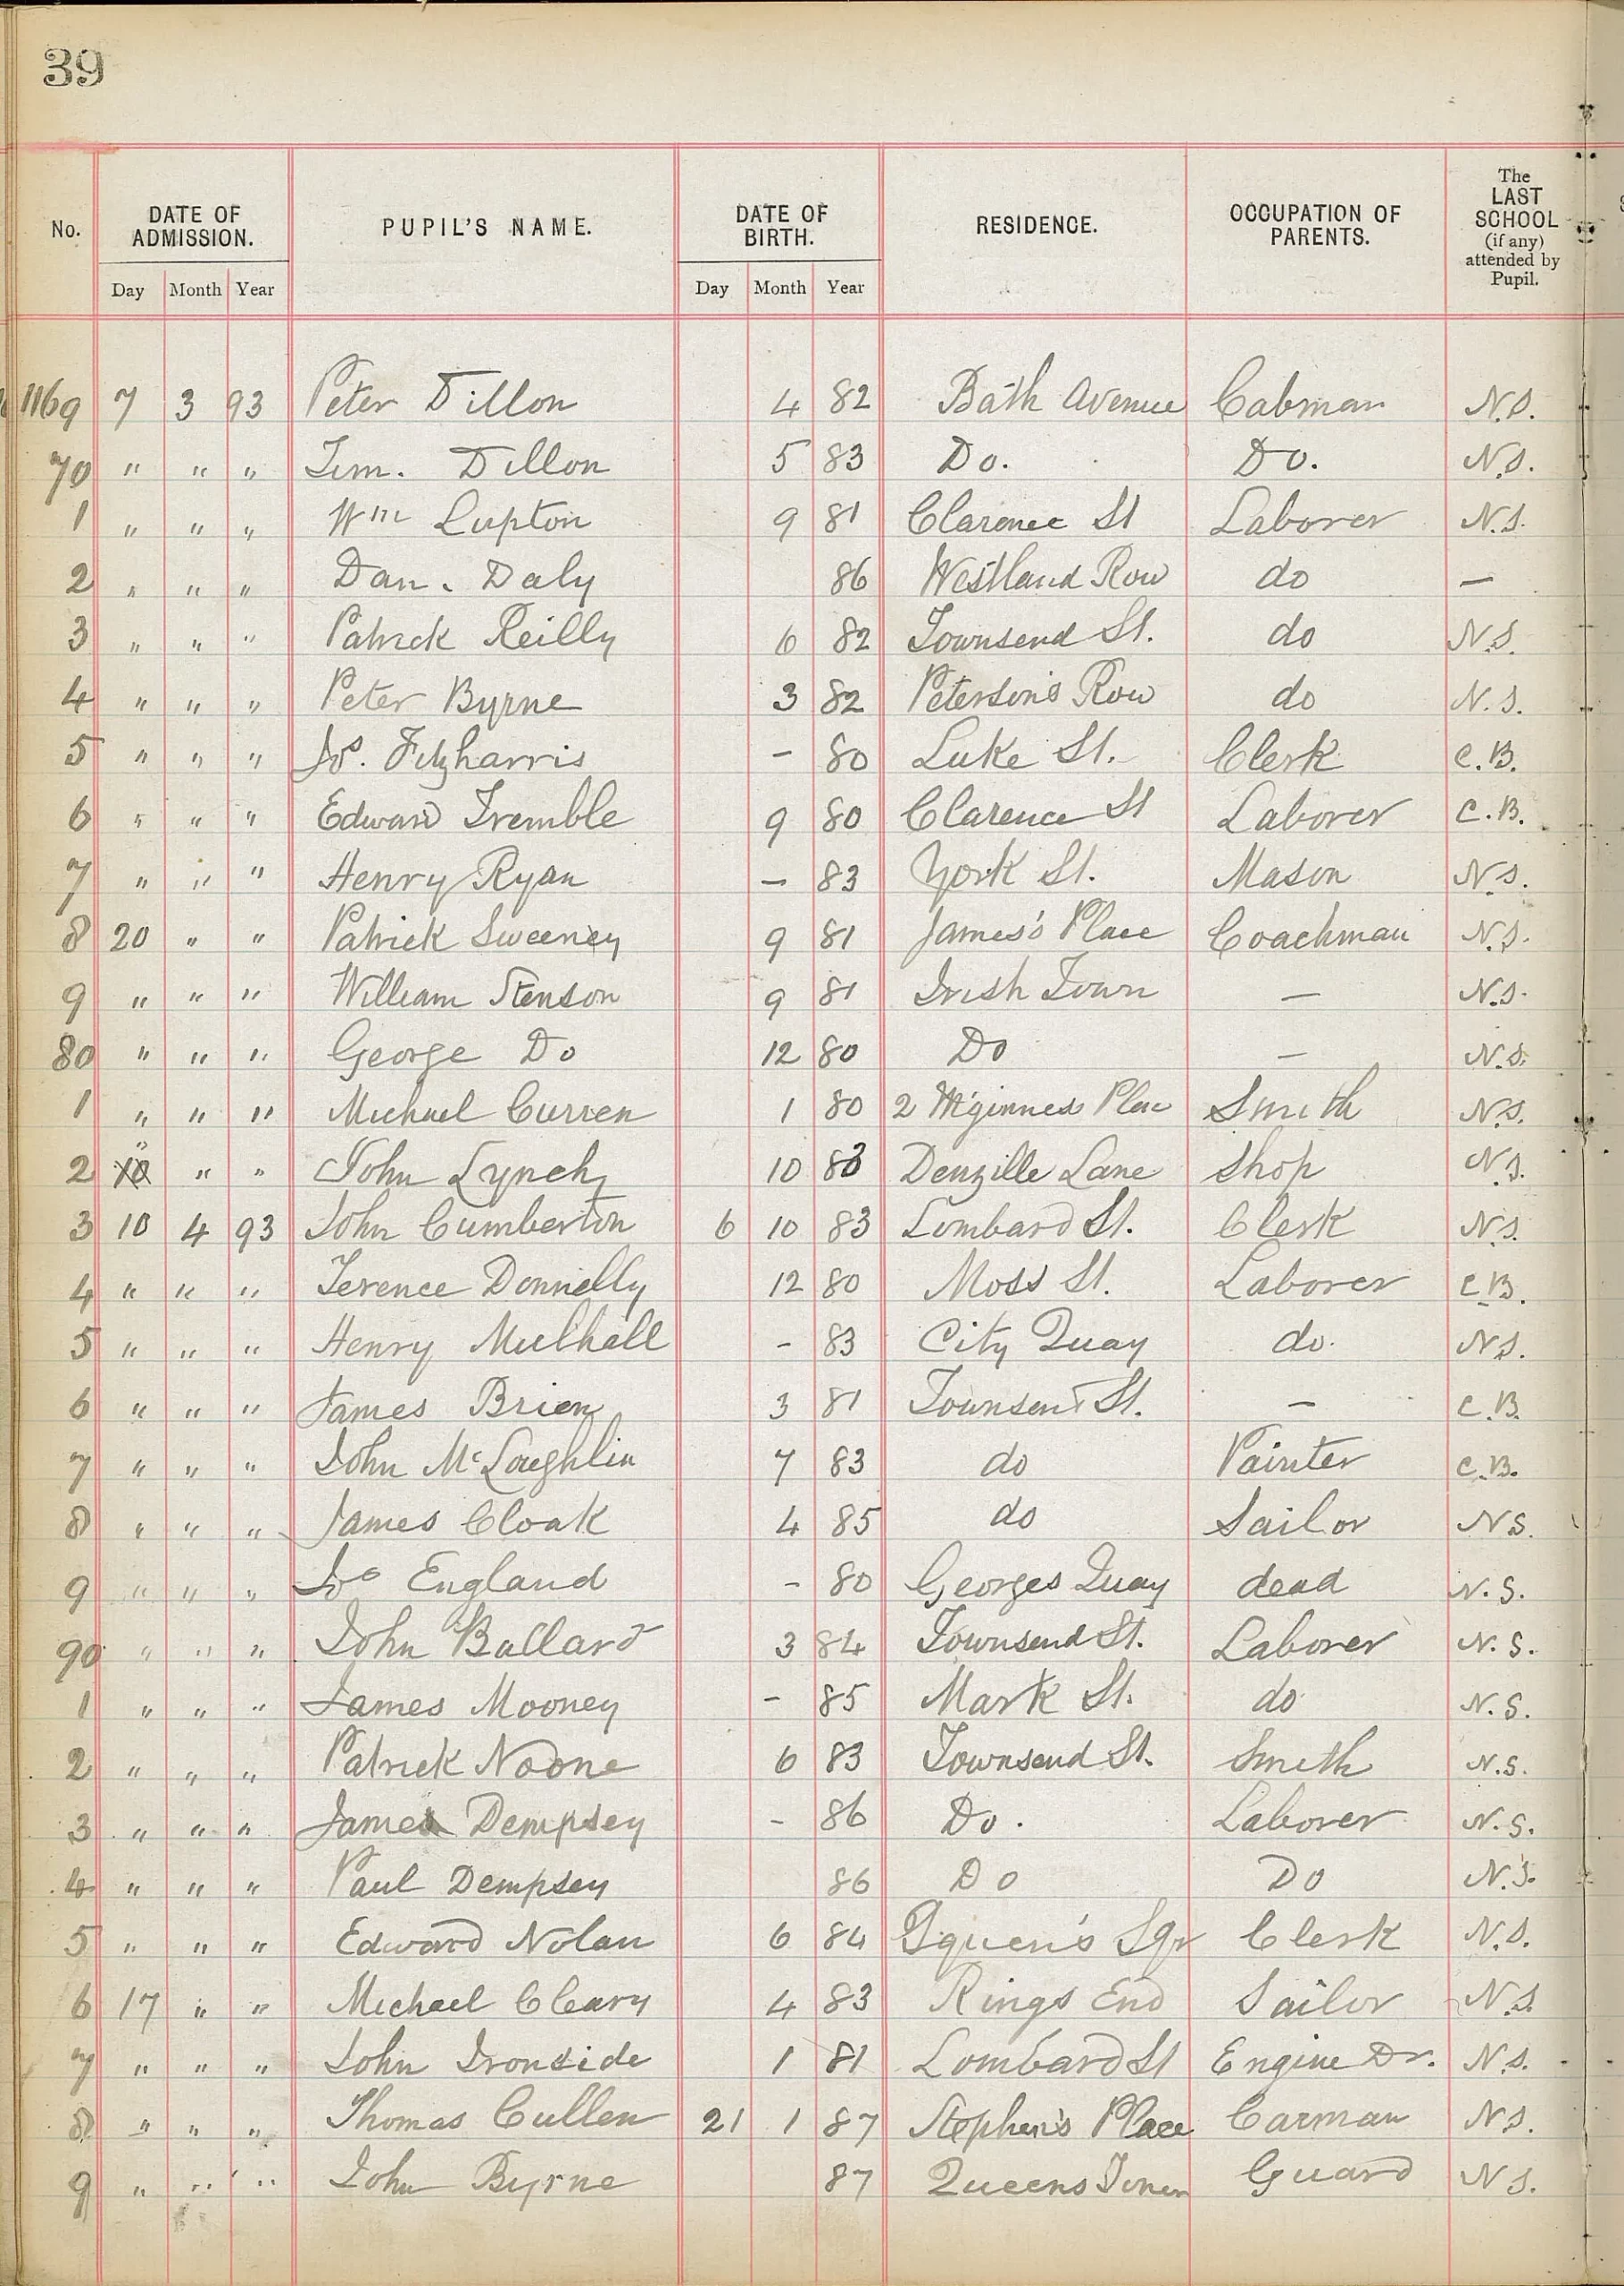 39
No. DATE OF ADMISSION. PUPIL'S NAME. DATE OF BIRTH. RESIDENCE. OCCUPATION OF PARENTS. The LAST SCHOOL (if any) attended by Pupil.
Day Month Year Day Month Year
1169 7 3 93 Peter Dillon 4 82 Bath Avenue Cabman N.S.
70 " " " Tim. Dillon 5 83 Do. Do. N.S.
1 " " " Wm Lupton 9 81 Clarence St Laborer N.S.
2 " " " Dan. Daly 86 Westland Row do —
3 " " " Patrick Reilly 6 82 Townsend St. do N.S.
4 " " " Peter Byrne 3 82 Peterson's Row do N.S.
5 " " " Jos. Fitzharris - 80 Luke St. Clerk C.B.
6 " " " Edward Tremble 9 80 Clarence St Laborer C.B.
7 " " " Henry Ryan - 83 York St. Mason N.S.
8 20 " " Patrick Sweeney 9 81 James's Place Coachman N.S.
9 " " " William Stenson 9 81 Irish Town — N.S.
80 " " " George Do 12 80 Do — N.S.
1 " " " Michael Curren 1 80 2 Smith N.S.
2 " " " John Lynch 10 83 Denzille Lane Shop N.S.
3 10 4 93 John Cumberton 6 10 83 Lombard St. Clerk N.S.
4 " " " Terence Donnelly 12 80 Moss St. Laborer C.B.
5 " " " Henry Mulhall - 83 City Quay do. N.S.
6 " " " James Brien 3 81 Townsend St. — C.B.
7 " " " John McLoughlin 7 83 do Painter C.B.
8 " " " James Cloak 4 85 do Sailor N.S.
9 " " " Jos England - 80 Georges Quay dead N.S.
90 " " " John Ballard 3 84 Townsend St. Laborer N.S.
1 " " " James Mooney - 85 Mark St. do N.S.
2 " " " Patrick Noone 6 83 Townsend St. Smith N.S.
3 " " " James Dempsey - 86 Do. Laborer N.S.
4 " " " Paul Dempsey 86 Do Do N.S.
5 " " " Edward Nolan 6 84 Sqr Clerk N.S.
6 17 " " Michael Cleary 4 83 Rings End Sailor N.S.
7 " " " John Ironside 1 81 Lombard St Engine Dr. N.S.
8 " " " Thomas Cullen 21 1 87 Stephen's Place Carman N.S.
9 " " " John Byrne 87 Queens Guard N.S.